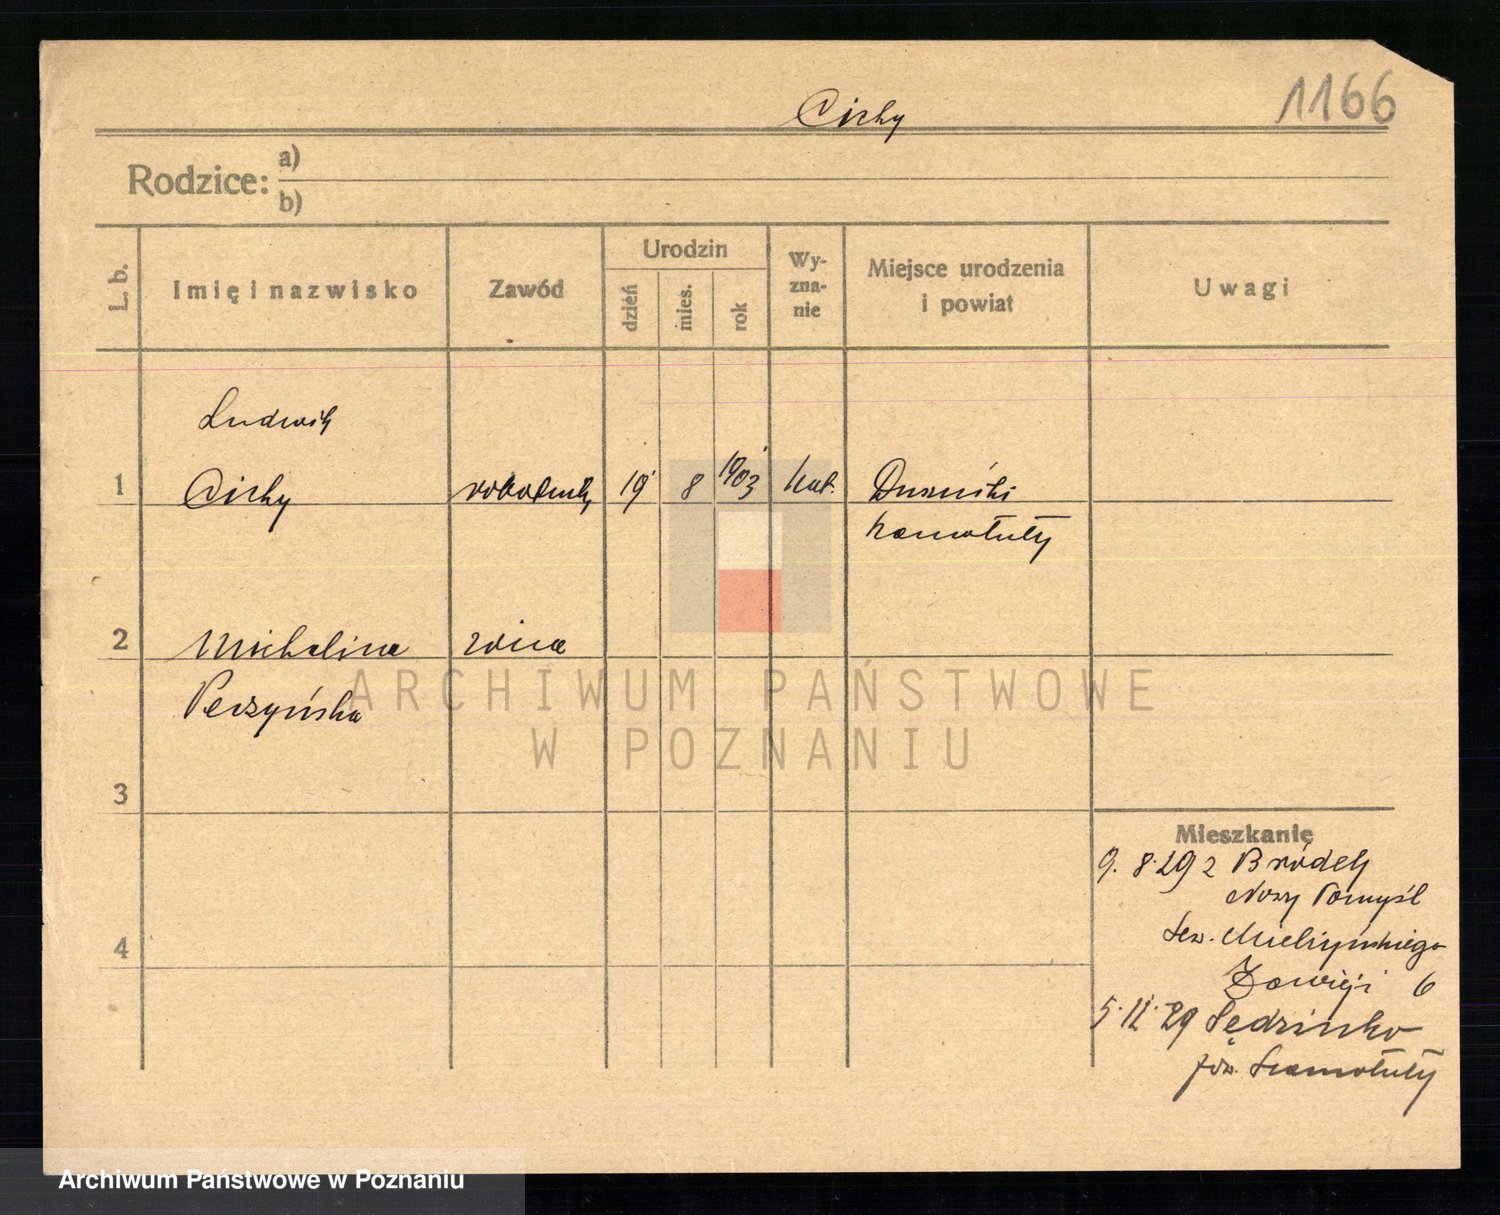 Cichy
1166
Rodzice: a)
b)
L. b.
Imię i nazwisko
Zawód
Urodzin
dzień
mies.
rok
Wy-
zna-
nie
Miejsce urodzenia
i powiat
Uwagi
Ludwik
1 Cichy robotnik 19 8 1903 kat. Duszniki
Szamotuły
2 Michalina żona
Perzyńska
3
4
Mieszkanie
9. 8. 29 z Bródek
Nowy Tomyśl
Sew. Mielżyńskiego
6
5. 11. 29 Sędzinko
pow. Szamotuły
ARCHIWUM PAŃSTWOWE
W POZNANIU
Archiwum Państwowe w Poznaniu